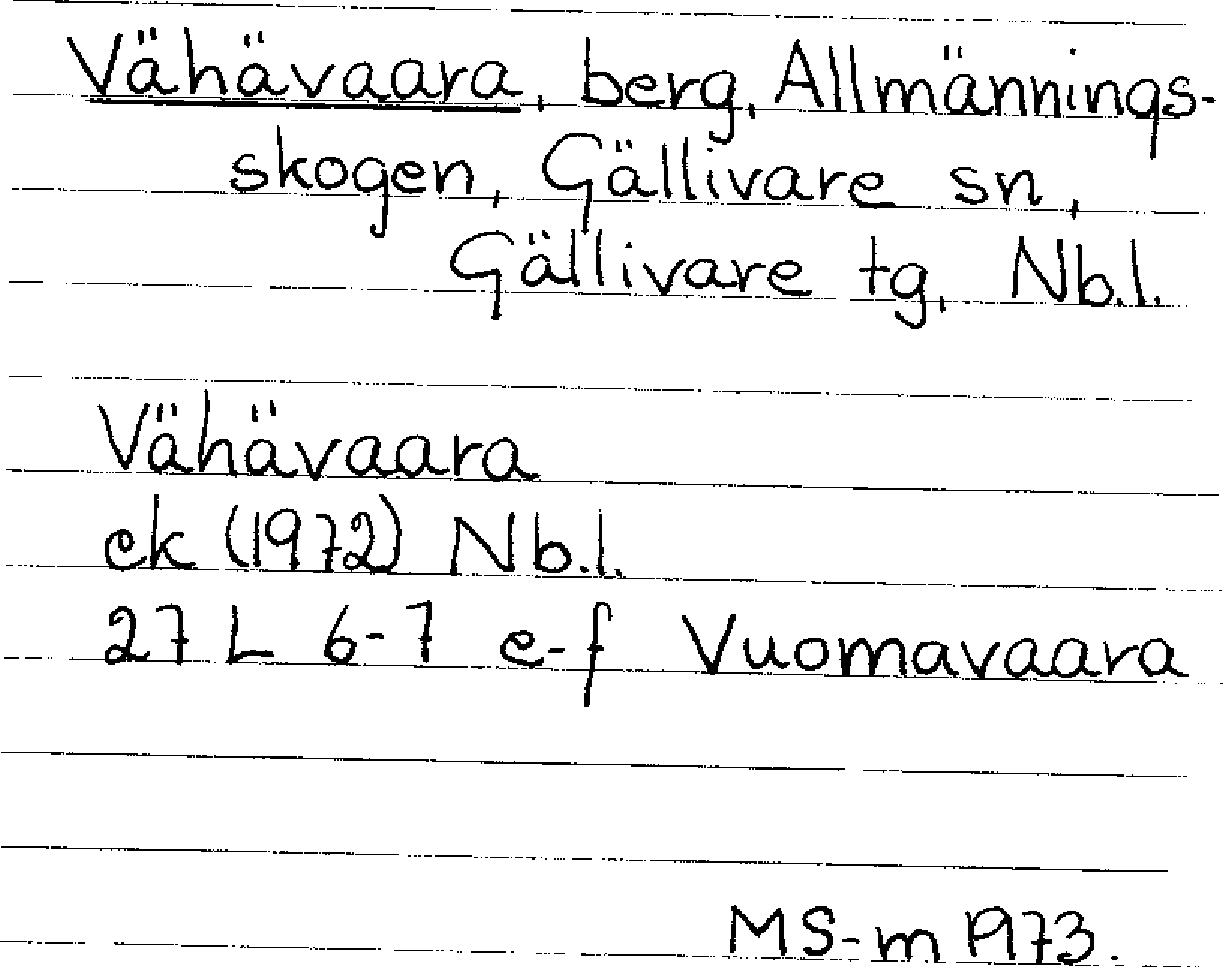 Vähävaara, berg, Allmännings-
skogen, Gällivare sn,
Gällivare tg, Nb.l.
Vähävaara
ek (1972) Nb.l.
27 L 6-7 e-f Vuomavaara
MS-m 1973.